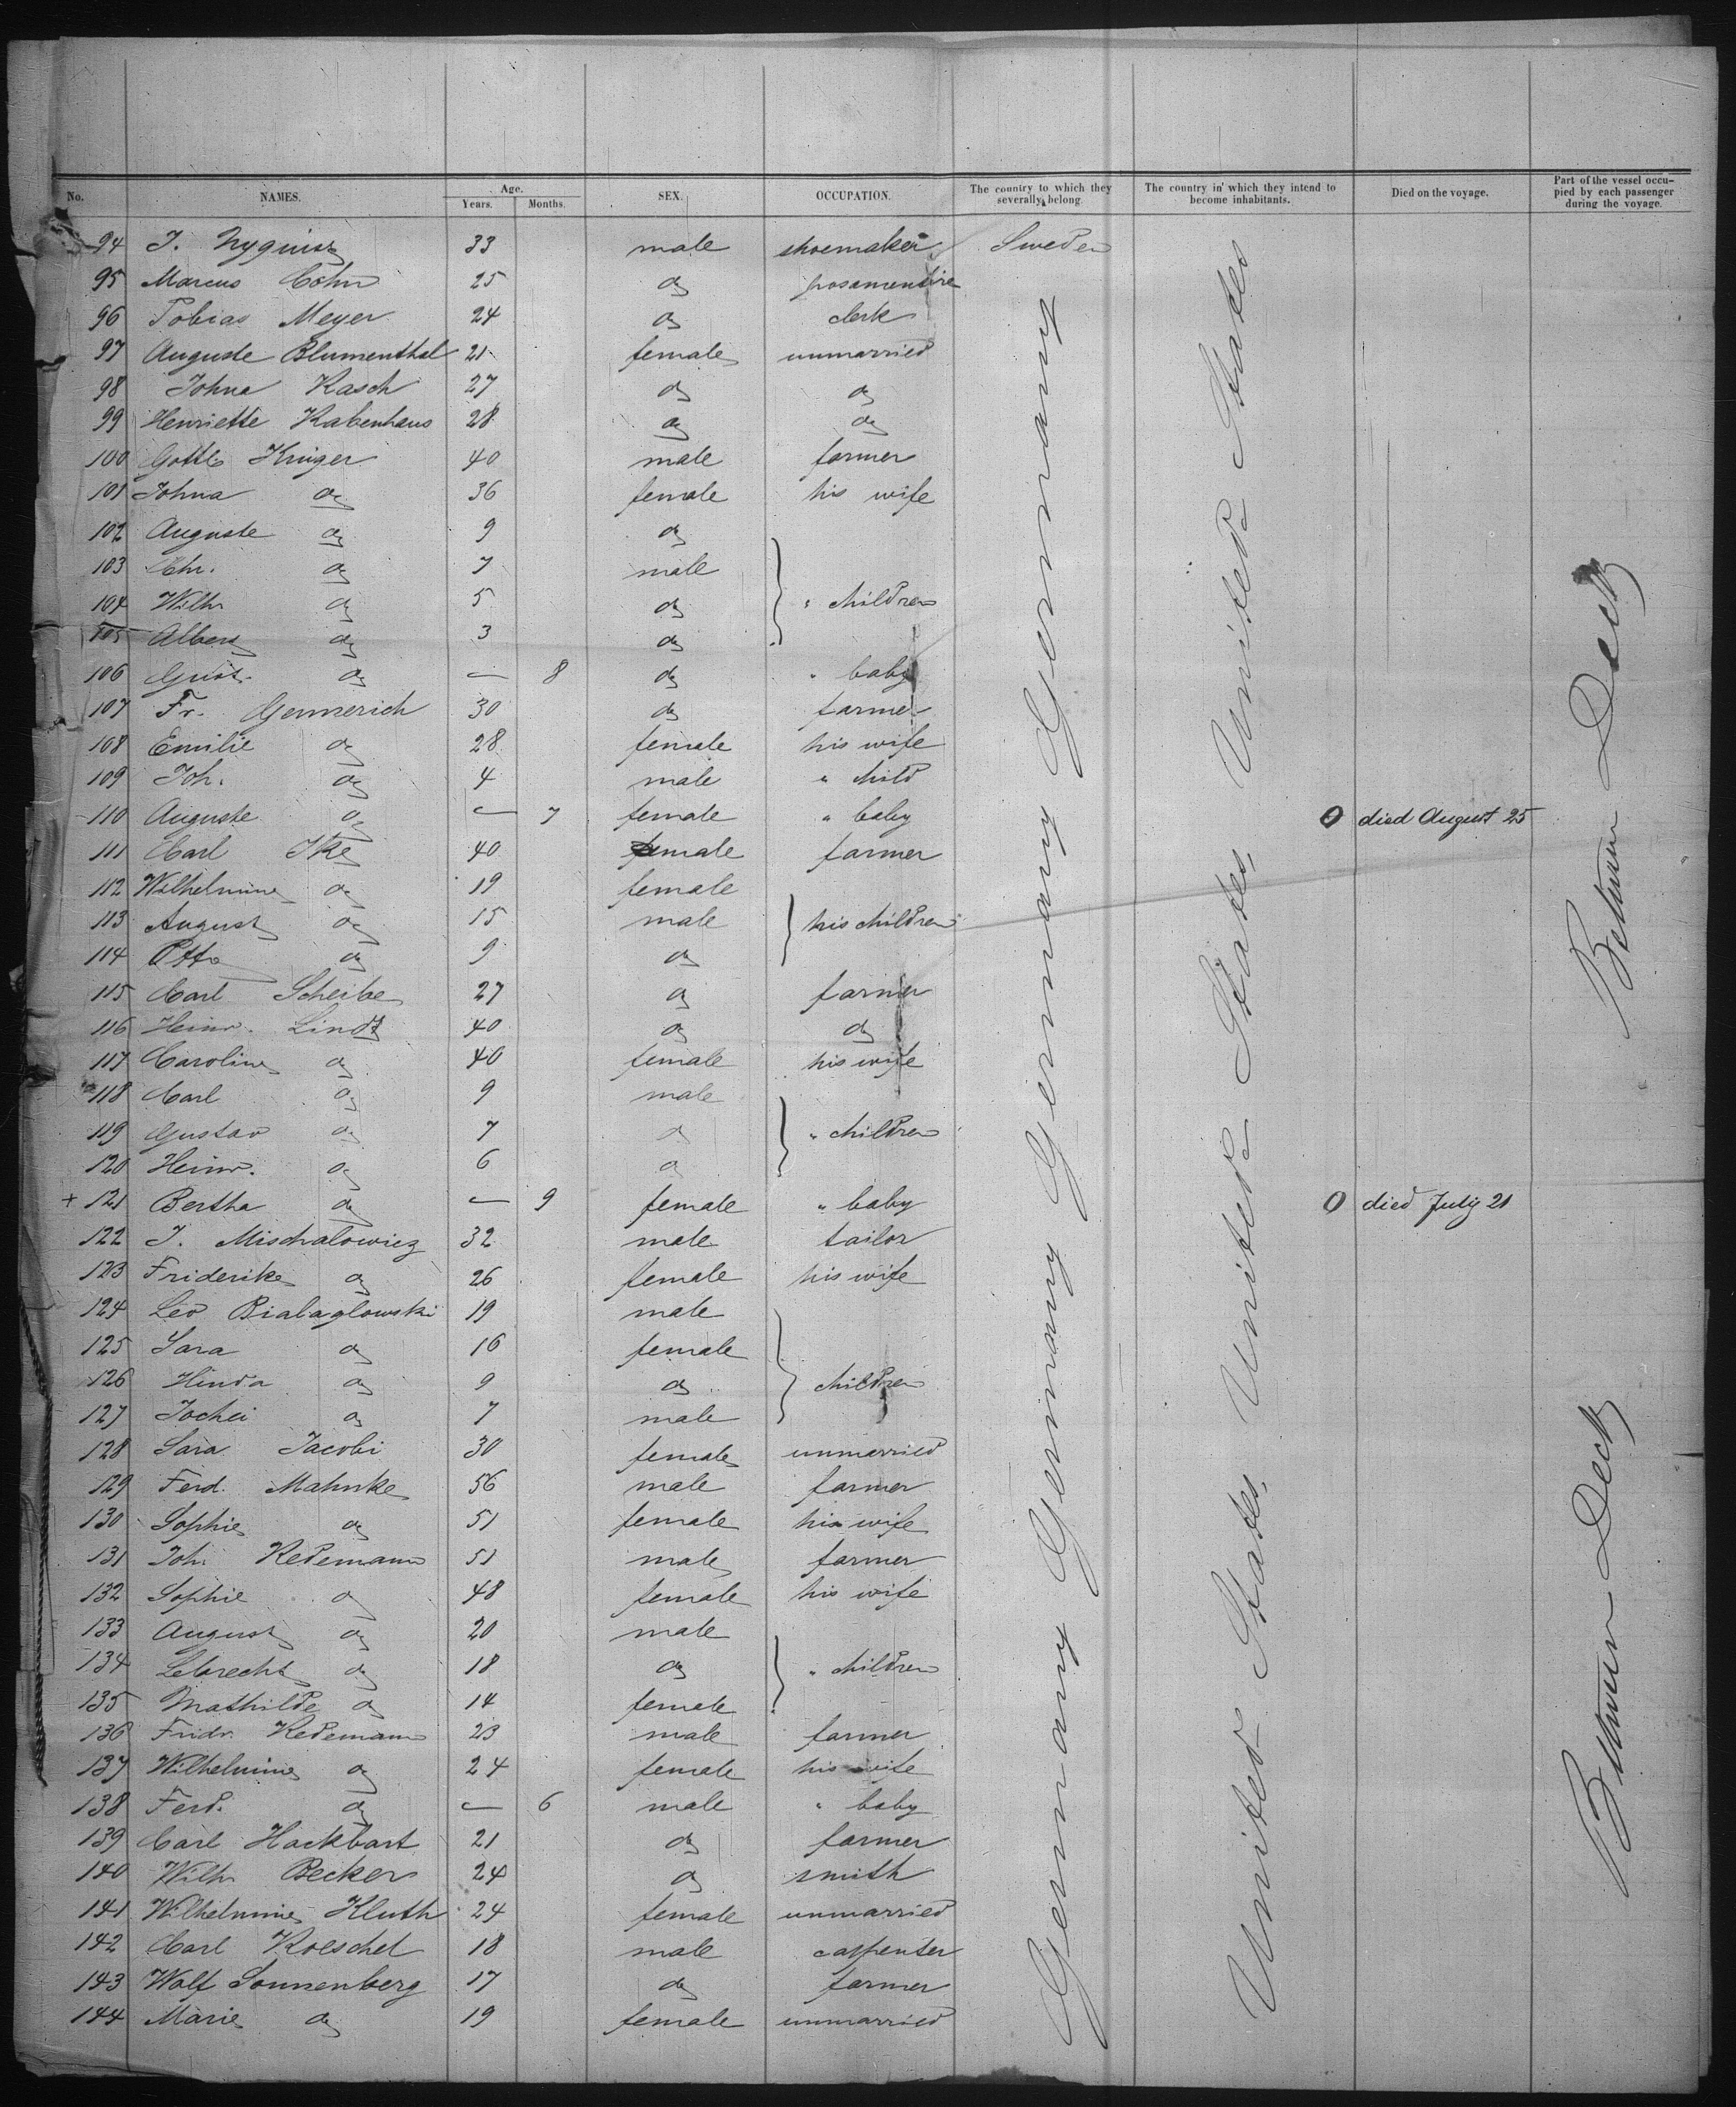 No. NAMES. Age. Years. Months. SEX. OCCUPATION. The country to which they severally belong. The country in which they intend to become inhabitants. Died on the voyage. Part of the vessel occupied by each passenger during the voyage.
94 J. Nyquist 33 male shoemaker Sweden
95 Marcus Cohn 25 do posamentire
96 Tobias Meyer 24 do clerk
97 Auguste Blumenthal 21 female unmarried
98 Johne Kasch 27 do do
99 Henriette Kabenhaus 28 do do
100 Gottlb Krüger 40 male farmer
101 Johna do 36 female his wife
102 Auguste do 9 do
103 Chr. do 7 male
104 Wilh. do 5 do " children
105 Albert do 3 do
106 Gust. do — 8 do " baby
107 Fr. Gennerich 30 do farmer
108 Emilie do 28 female his wife
109 Joh. do 4 male " child
110 Auguste do — 7 female " baby 0 died August 25
111 Carl Ike 40 male farmer
112 Wilhelmine do 19 female
113 August do 15 male his children
114 Otto do 9 do
115 Carl Scheibe 27 do farmer
116 Heinr. Lindt 40 do do
117 Caroline do 40 female his wife
118 Carl do 9 male
119 Gustav do 7 do " children
120 Heinr. do 6 do
+ 121 Bertha do — 9 female " baby 0 died July 21
122 J. Mischalowicz 32 male tailor
123 Friderike do 26 female his wife
124 Leo Bialaglowski 19 male
125 Sara do 16 female
126 Hinda do 9 do children
127 Jochei do 7 male
128 Sara Jacobi 30 female unmarried
129 Ferd. Mahnke 56 male farmer
130 Sophie do 51 female his wife
131 Joh. Redemann 51 male farmer
132 Sophie do 48 female his wife
133 August do 20 male
134 Lebrecht do 18 do " children
135 Mathilde do 14 female
136 Fridr. Redemann 23 male farmer
137 Wilhelmine do 24 female his wife
138 Ferd. do — 6 male " baby
139 Carl Hackbart 21 do farmer
140 Wilh. Becker 24 do smith
141 Wilhelmine Kluth 24 female unmarried
142 Carl Roeschel 18 male carpenter
143 Wolf Sonnenberg 17 do farmer
144 Marie do 19 female unmarried
Germany Germany Germany Germany Germany
United States, United States, United States
Between Deck Between Deck